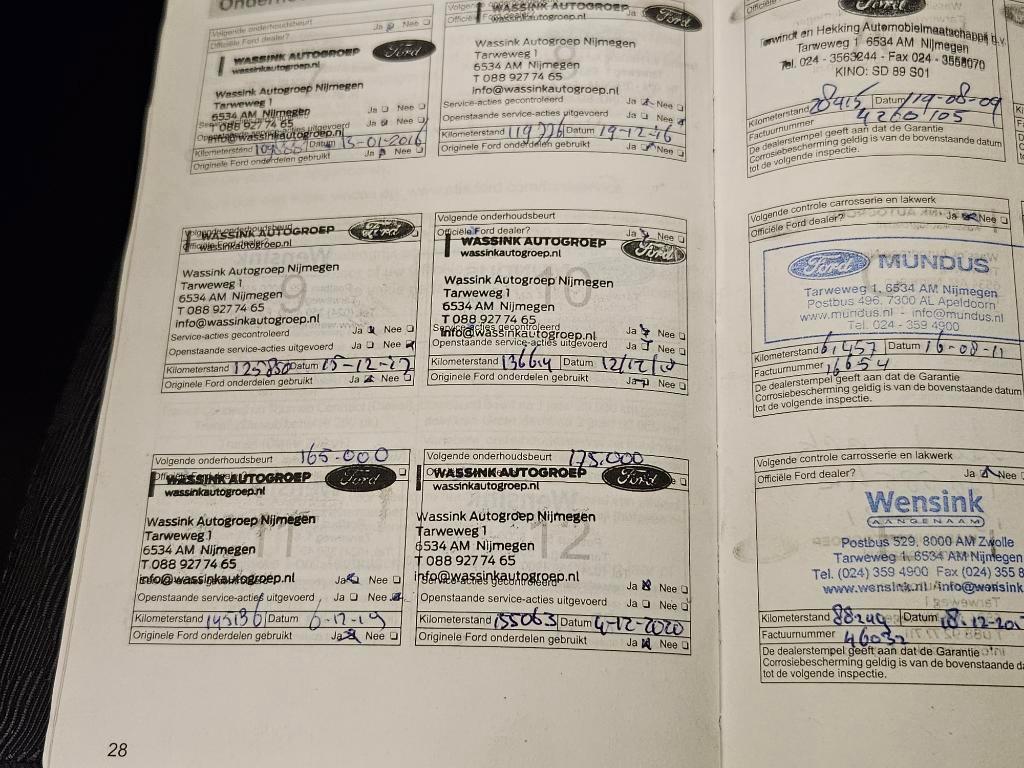 Volgende onderhoudsbeurt
Officiële Ford dealer? Ja Nee
WASSINK AUTOGROEP Ford
wassinkautogroep.nl
Wassink Autogroep Nijmegen
Tarweweg 1
6534 AM Nijmegen
T 088 927 74 65
info@wassinkautogroep.nl
Ja Nee
Openstaande service-acties uitgevoerd Ja Nee
Kilometerstand Datum 13-01-2016
Originele Ford onderdelen gebruikt Ja Nee
WASSINK AUTOGROEP Ford
wassinkautogroep.nl
Wassink Autogroep Nijmegen
Tarweweg 1
6534 AM Nijmegen
T 088 927 74 65
info@wassinkautogroep.nl
Service-acties gecontroleerd Ja Nee
Openstaande service-acties uitgevoerd Ja Nee
Kilometerstand 119776 Datum 19-12-16
Originele Ford onderdelen gebruikt Ja Nee
Volgende onderhoudsbeurt
Officiële Ford dealer?
WASSINK AUTOGROEP Ford
wassinkautogroep.nl
9
Wassink Autogroep Nijmegen
Tarweweg 1
6534 AM Nijmegen
T 088 927 74 65
info@wassinkautogroep.nl
Service-acties gecontroleerd Ja Nee
Openstaande service-acties uitgevoerd Ja Nee
Kilometerstand 125850 Datum 15-12-17
Originele Ford onderdelen gebruikt Ja Nee
Volgende onderhoudsbeurt
Officiële Ford dealer? Ja Nee
WASSINK AUTOGROEP Ford
wassinkautogroep.nl
10
Wassink Autogroep Nijmegen
Tarweweg 1
6534 AM Nijmegen
T 088 927 74 65
info@wassinkautogroep.nl
Service-acties gecontroleerd Ja Nee
Openstaande service-acties uitgevoerd Ja Nee
Kilometerstand 136614 Datum 12/12/18
Originele Ford onderdelen gebruikt Ja Nee
Volgende onderhoudsbeurt 165.000
Officiële Ford dealer?
WASSINK AUTOGROEP Ford
wassinkautogroep.nl
11
Wassink Autogroep Nijmegen
Tarweweg 1
6534 AM Nijmegen
T 088 927 74 65
info@wassinkautogroep.nl
Service-acties gecontroleerd Ja Nee
Openstaande service-acties uitgevoerd Ja Nee
Kilometerstand 145136 Datum 6-12-19
Originele Ford onderdelen gebruikt Ja Nee
Volgende onderhoudsbeurt 175.000
Officiële Ford dealer?
WASSINK AUTOGROEP Ford
wassinkautogroep.nl
12
Wassink Autogroep Nijmegen
Tarweweg 1
6534 AM Nijmegen
T 088 927 74 65
info@wassinkautogroep.nl
Service-acties gecontroleerd Ja Nee
Openstaande service-acties uitgevoerd Ja Nee
Kilometerstand 155063 Datum 4-12-2020
Originele Ford onderdelen gebruikt Ja Nee
28
Ford
Terwindt en Hekking Automobielmaatschappij b.v.
Tarweweg 1 6534 AM Nijmegen
Tel. 024 - 3563244 - Fax 024 - 3558070
KINO: SD 89 S01
Kilometerstand 28415 Datum 19-08-09
Factuurnummer 4260105
De dealerstempel geeft aan dat de Garantie
Corrosiebescherming geldig is van de bovenstaande datum
tot de volgende inspectie.
Volgende controle carrosserie en lakwerk
Officiële Ford dealer? Ja Nee
Ford MUNDUS
Tarweweg 1, 6534 AM Nijmegen
Postbus 496, 7300 AL Apeldoorn
www.mundus.nl - info@mundus.nl
Tel. 024 - 359 4900
Kilometerstand 61,457 Datum 16-08-11
Factuurnummer 16654
De dealerstempel geeft aan dat de Garantie
Corrosiebescherming geldig is van de bovenstaande datum
tot de volgende inspectie.
Volgende controle carrosserie en lakwerk
Officiële Ford dealer? Ja Nee
Wensink
AANGENAAM
Postbus 529, 8000 AM Zwolle
Tarweweg 1, 6534 AM Nijmegen
Tel. (024) 359 4900 Fax (024) 355 8
www.wensink.nl info@wensink
Kilometerstand 88249 Datum 18-12-201
Factuurnummer 46032
De dealerstempel geeft aan dat de Garantie
Corrosiebescherming geldig is van de bovenstaande da
tot de volgende inspectie.